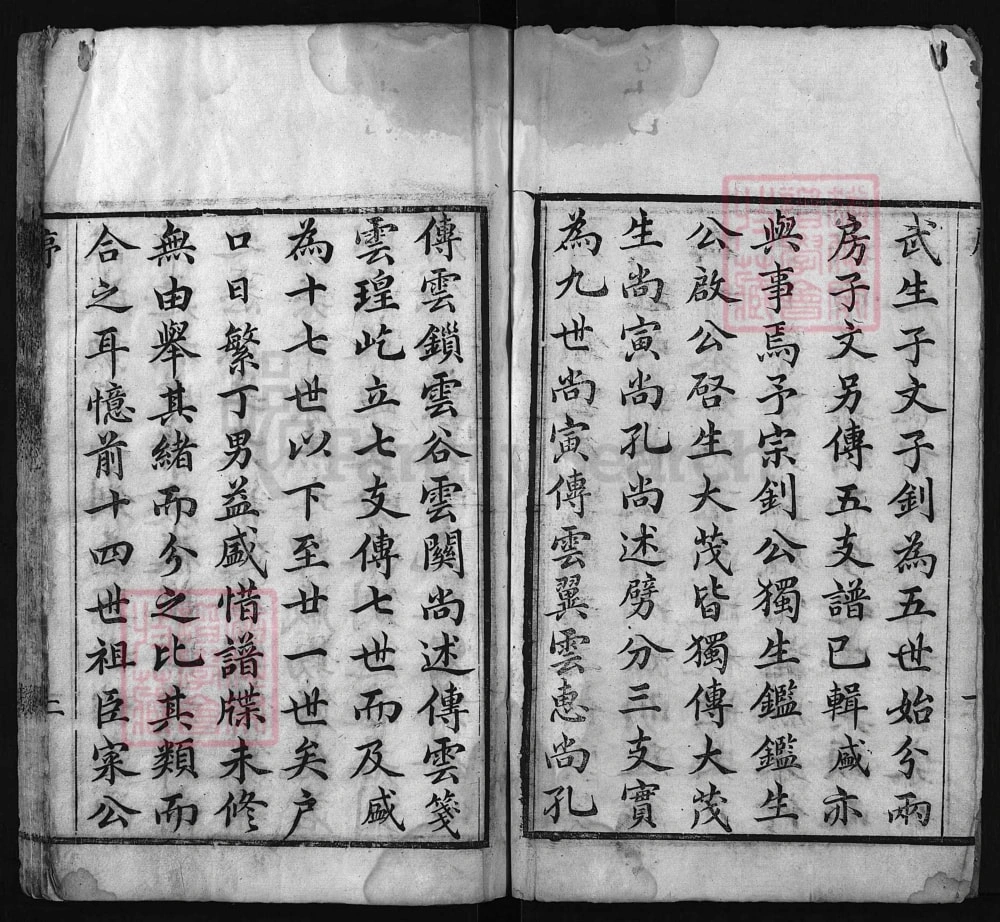 武生子文子釗為五世始分兩
房子文另傳五支譜已輯盛亦
與事焉予宗釗公獨生鑑鑑生
公啟公啓生大茂皆獨傳大茂
生尚寅尚孔尚述劈分三支實
為九世尚寅傳雲翼雲惠尚孔
傳雲鎖雲谷雲関尚述傳雲箋
雲瑝屹立七支傳七世而及盛
為十七世以下至廿一世矣户
口日繁丁男益盛惜譜牒未修
無由舉其緒而分之比其類而
合之耳憶前十四世祖臣寀公
序
二
FamilySearch